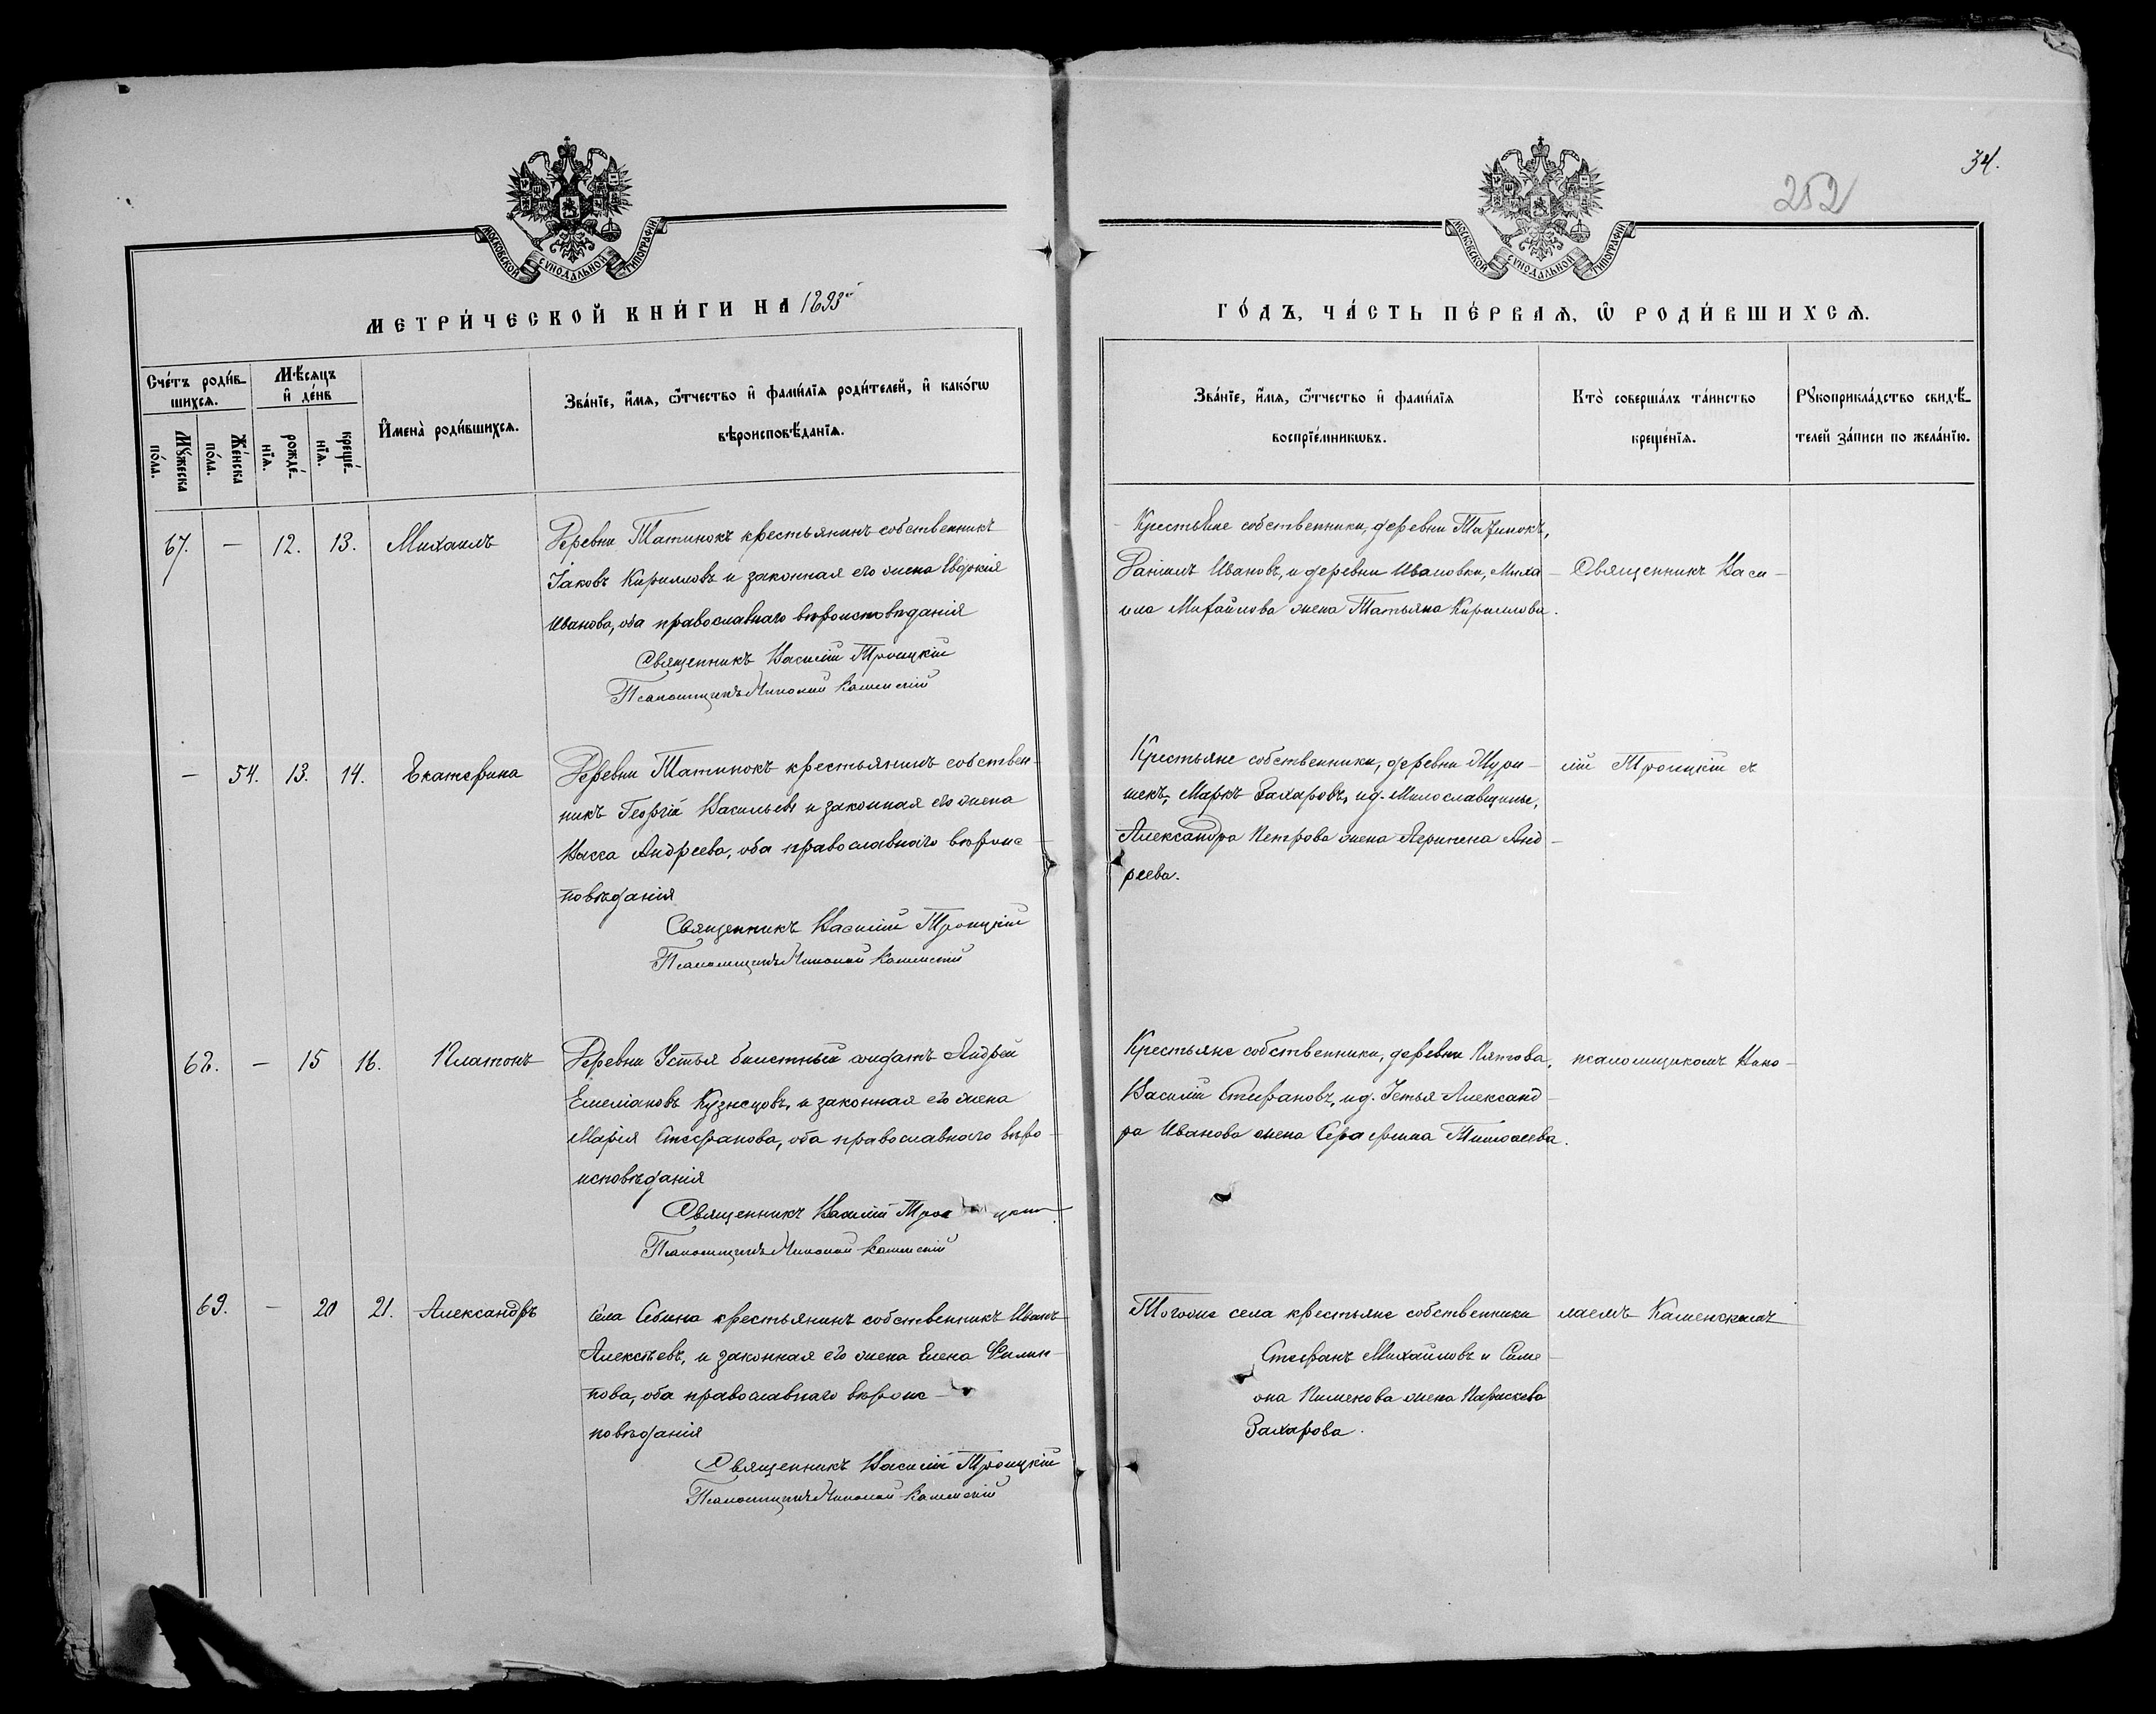 МОСКОВСКОЙ СУНОДАЛЬНОЙ ТИПОГРАФІИ
МЕТРИ́ЧЕСКОЙ КНИ́ГИ НА 1893й
Сче́тъ роди́в-
шихсѧ.
Мѣ́сѧцъ
и҆ де́нь
Мꙋ́жеска
по́ла.
Же́нска
по́ла.
рожде́-
нїѧ.
креще́-
нїѧ.
И҆мена̀ роди́вшихсѧ.
Зва́нїе, и҆́мѧ, ѻ҆́тчество и҆ фами́лїѧ роди́телей, и҆ како́гѡ
вѣроисповѣ́данїѧ.
67. — 12. 13. Михаилъ
Деревни Татинокъ крестьянинъ собственникъ
Іаковъ Кирилловъ и законная его жена Евдокія
Иванова, оба православнаго вѣроисповѣданія
Священникъ Василій Троицкій
Псаломщикъ Николай Каменскій
— 54. 13. 14. Екатерина
Деревни Татинокъ крестьянинъ собствен-
никъ Георгій Васильевъ и законная его жена
Васса Андреева, оба православнаго вѣроис-
повѣданія
Священникъ Василій Троицкій
Псаломщикъ Николай Каменскій
68. — 15 16. Платонъ
Деревни Устья билетный солдатъ Андрей
Емеліановъ Кузнецовъ, и законная его жена
Марія Стефанова, оба православнаго вѣро-
исповѣданія
Священникъ Василій Троицкій
Псаломщикъ Николай Каменскій
69. — 20 21. Александръ
Села Себина крестьянинъ собственникъ Иванъ
Алексѣевъ, и законная его жена Елена Филип-
пова, оба православнаго вѣроис-
повѣданія
Священникъ Василій Троицкій
Псаломщикъ Николай Каменскій
34.
252
МОСКОВСКОЙ СУНОДАЛЬНОЙ ТИПОГРАФІИ
ГО́ДЪ, ЧА́СТЬ ПЕ́РВАѦ, Ѡ҆ РОДИ́ВШИХСѦ.
Зва́нїе, и҆́мѧ, ѻ҆́тчество и҆ фами́лїѧ
воспрїе́мникѡвъ.
Кто̀ соверша́лъ та́инство
креще́нїѧ.
Рꙋкоприкла́дство свидѣ́-
телей за́писи по жела́нїю.
Крестьяне собственники, деревни Татинокъ,
Даніилъ Ивановъ, и деревни Ивановки, Миха-
ила Михайлова жена Татьяна Кириллова.
Священникъ Васи-
Крестьяне собственники, деревни
шекъ, Маркъ Захаровъ, и д. Милославщины,
Александра Петрова жена Агрипена Анд-
реева.
лій Троицкій съ
Крестьяне собственники, деревни Пятова,
Василій Стефановъ, и д. Устья Александ-
ра Иванова жена Серафима Тимофеева.
псаломщикомъ Нико-
Тогоже села крестьяне собственники
Стефанъ Михайловъ и Симе-
она Пименова жена Параскева
Захарова.
лаемъ Каменскимъ